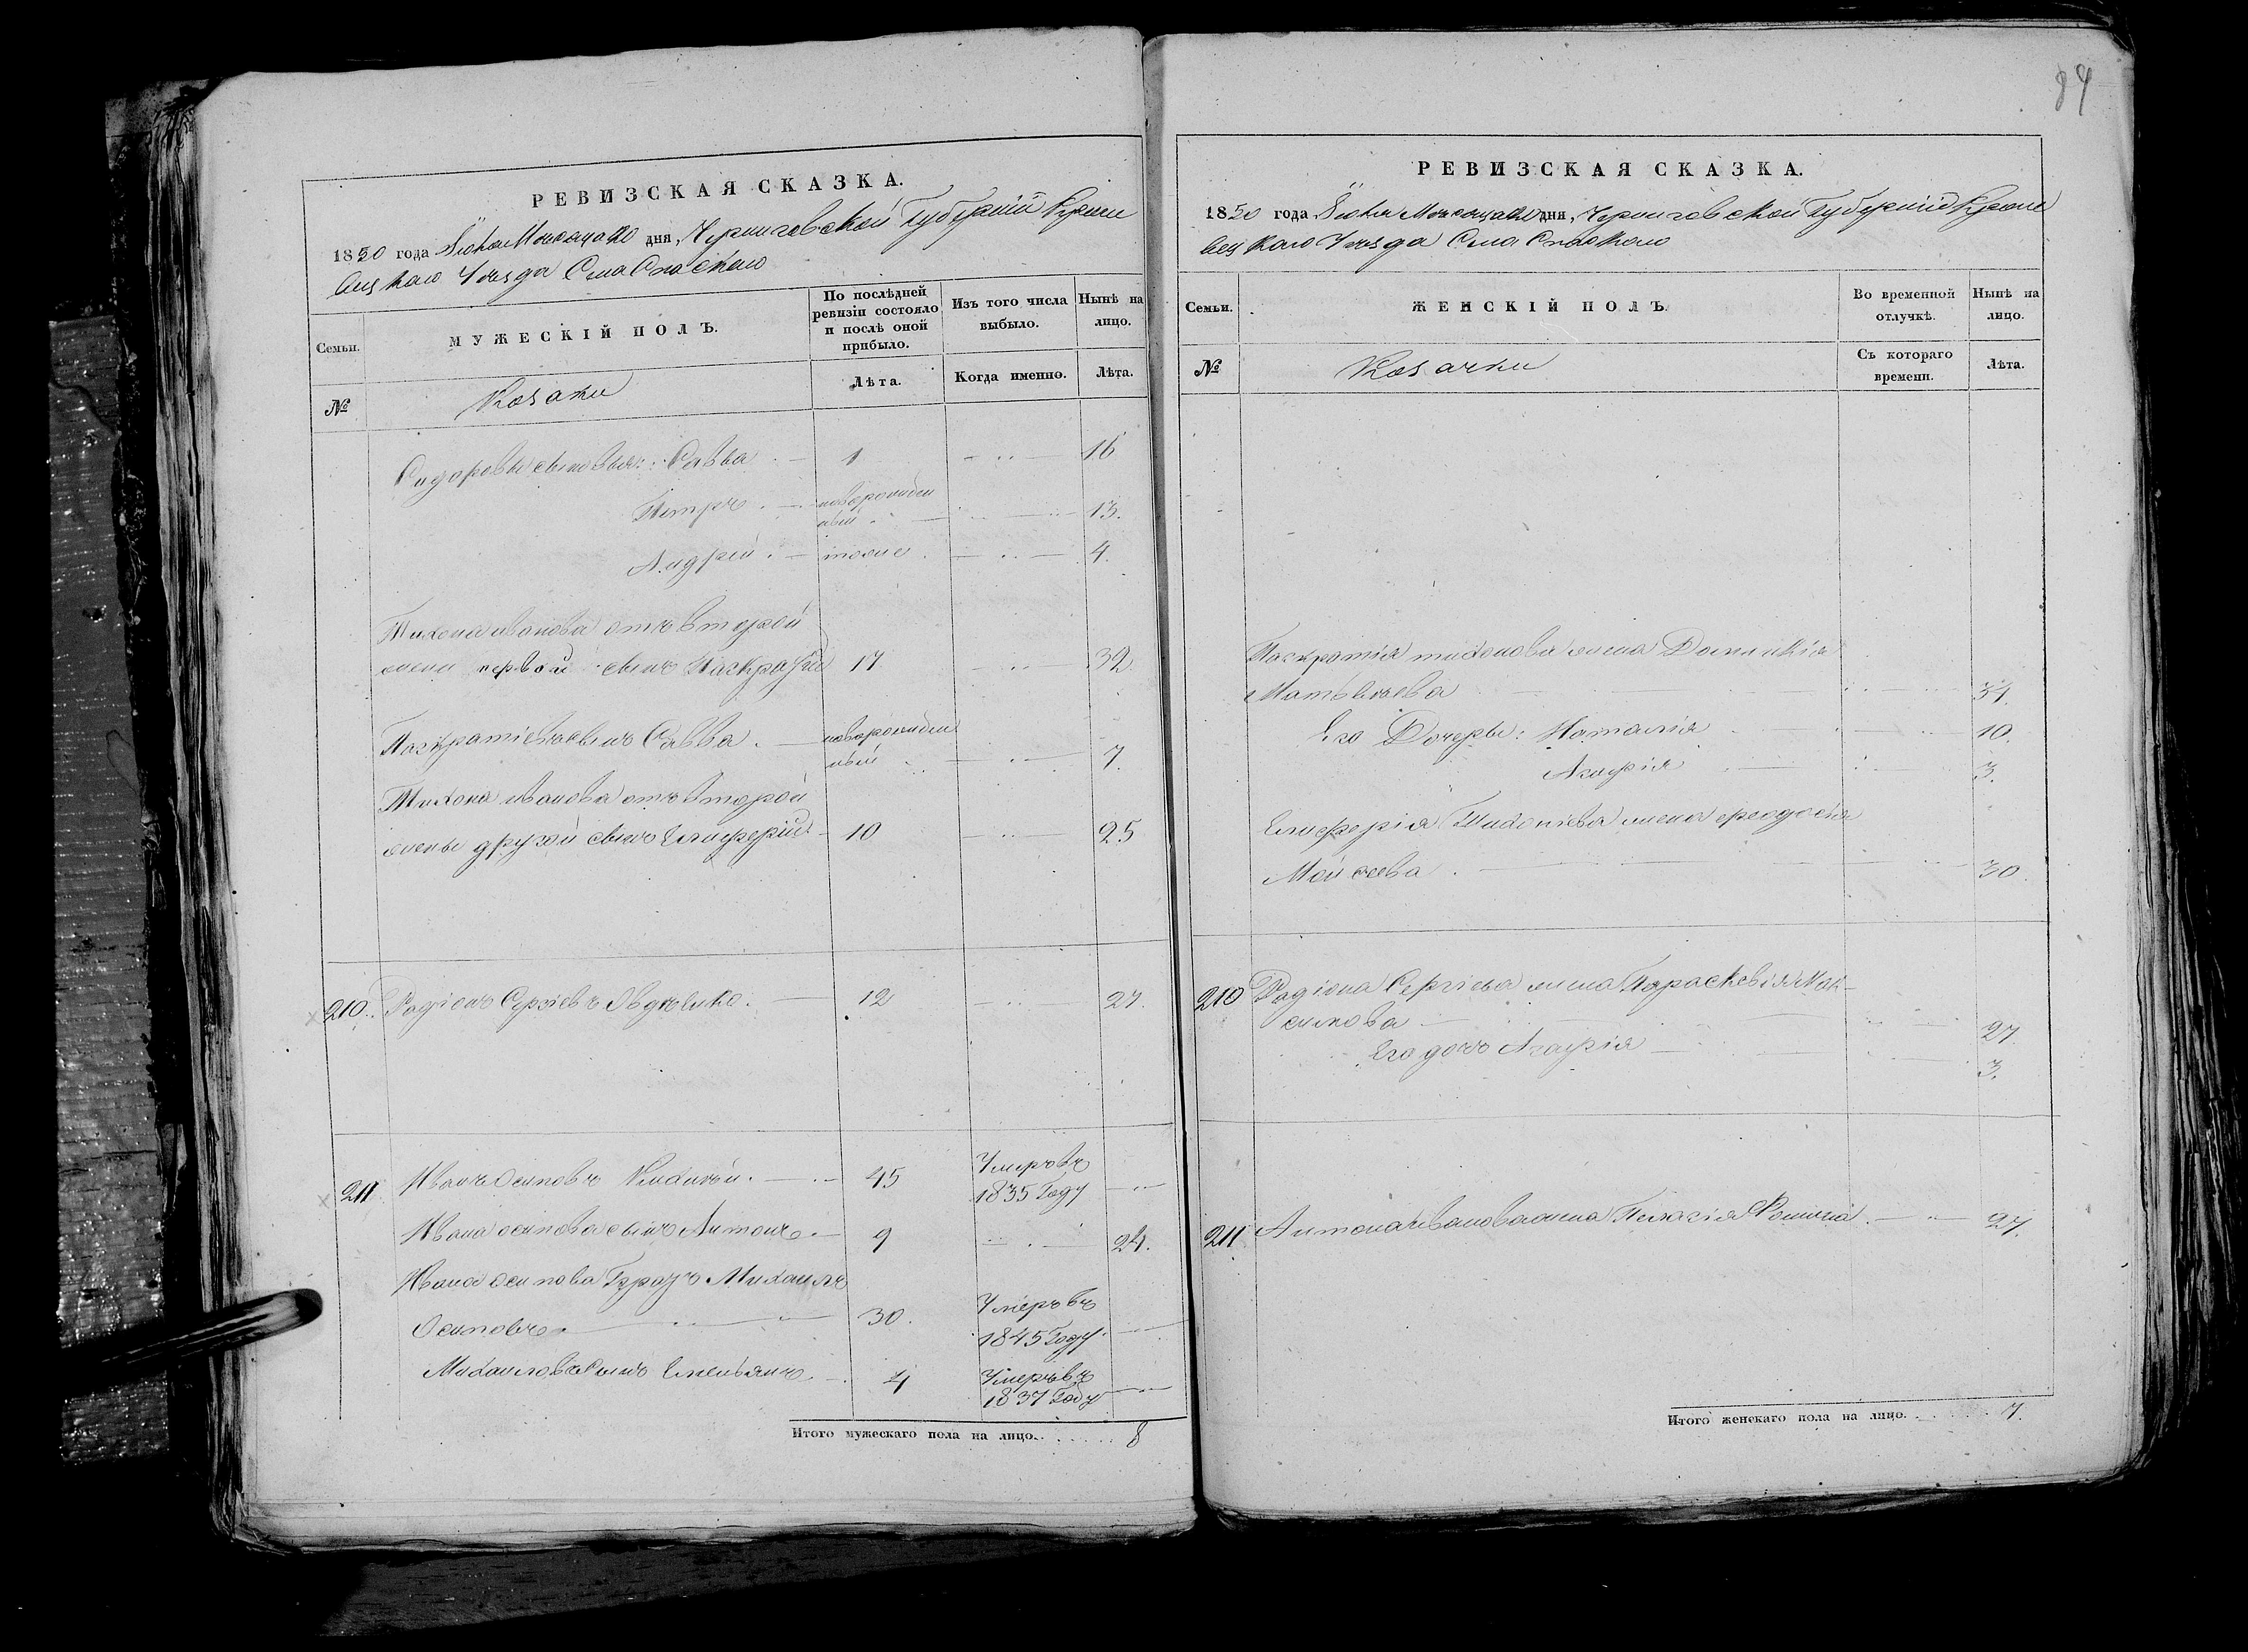 84
РЕВИЗСКАЯ СКАЗКА.
1850 года дня, Черниговской Губерніи Кроле
вецкаго Уезда Села Спаскаго
Семьи.
МУЖЕСКІЙ ПОЛЪ.
По послѣдней ревизіи состояло и послѣ оной прибыло.
Изъ того числа выбыло.
Нынѣ на лицо.
№
Козаки
Лѣта.
Когда именно.
Лѣта.
Сидоровы сыновья: Савва 1 16
Петръ новорожден
ный 13.
Андрей тоже 4.
Тихона иванова отъ второй
жены первой сынъ Панкратій 17 32.
Панкратіевъ сынъ Савва новорожден
ный 7.
Тихона иванова отъ второй
жены другой сынъ Елиферій 10 25
210. Радіонъ Сергіевъ 12 27.
211 Иванъ Осиповъ 45 Умеръ въ
1835 Году
Ивана осипова сынъ Антонъ 9 24.
Ивана осипова Братъ Михаилъ
Осиповъ 30. Умеръ въ
1845 Году
Михаиловъ Сынъ Емельянъ 4 Умеръ въ
1837 Году
Итого мужескаго пола на лицо. 8
РЕВИЗСКАЯ СКАЗКА.
1850 года дня, Черниговской Губерніи Кроле
вецкаго Уезда Села Спаскаго
Семьи.
ЖЕНСКІЙ ПОЛЪ.
Во временной отлучкѣ.
Нынѣ на лицо.
№
Козачки
Съ котораго времени.
Лѣта.
Панкратія тихонова жена Домникія
Матвеева 31.
Его Дочеры: Наталія 10.
Агафія 3.
Елиферія Тихоніева жена феодосія
Мойсеева 30.
210 Радіона Сергіева жена Параскевія Мак-
симова 27
Его дочь Агафія 3.
211 Антона иванова жена Пелагія 27.
Итого женскаго пола на лицо. 7.